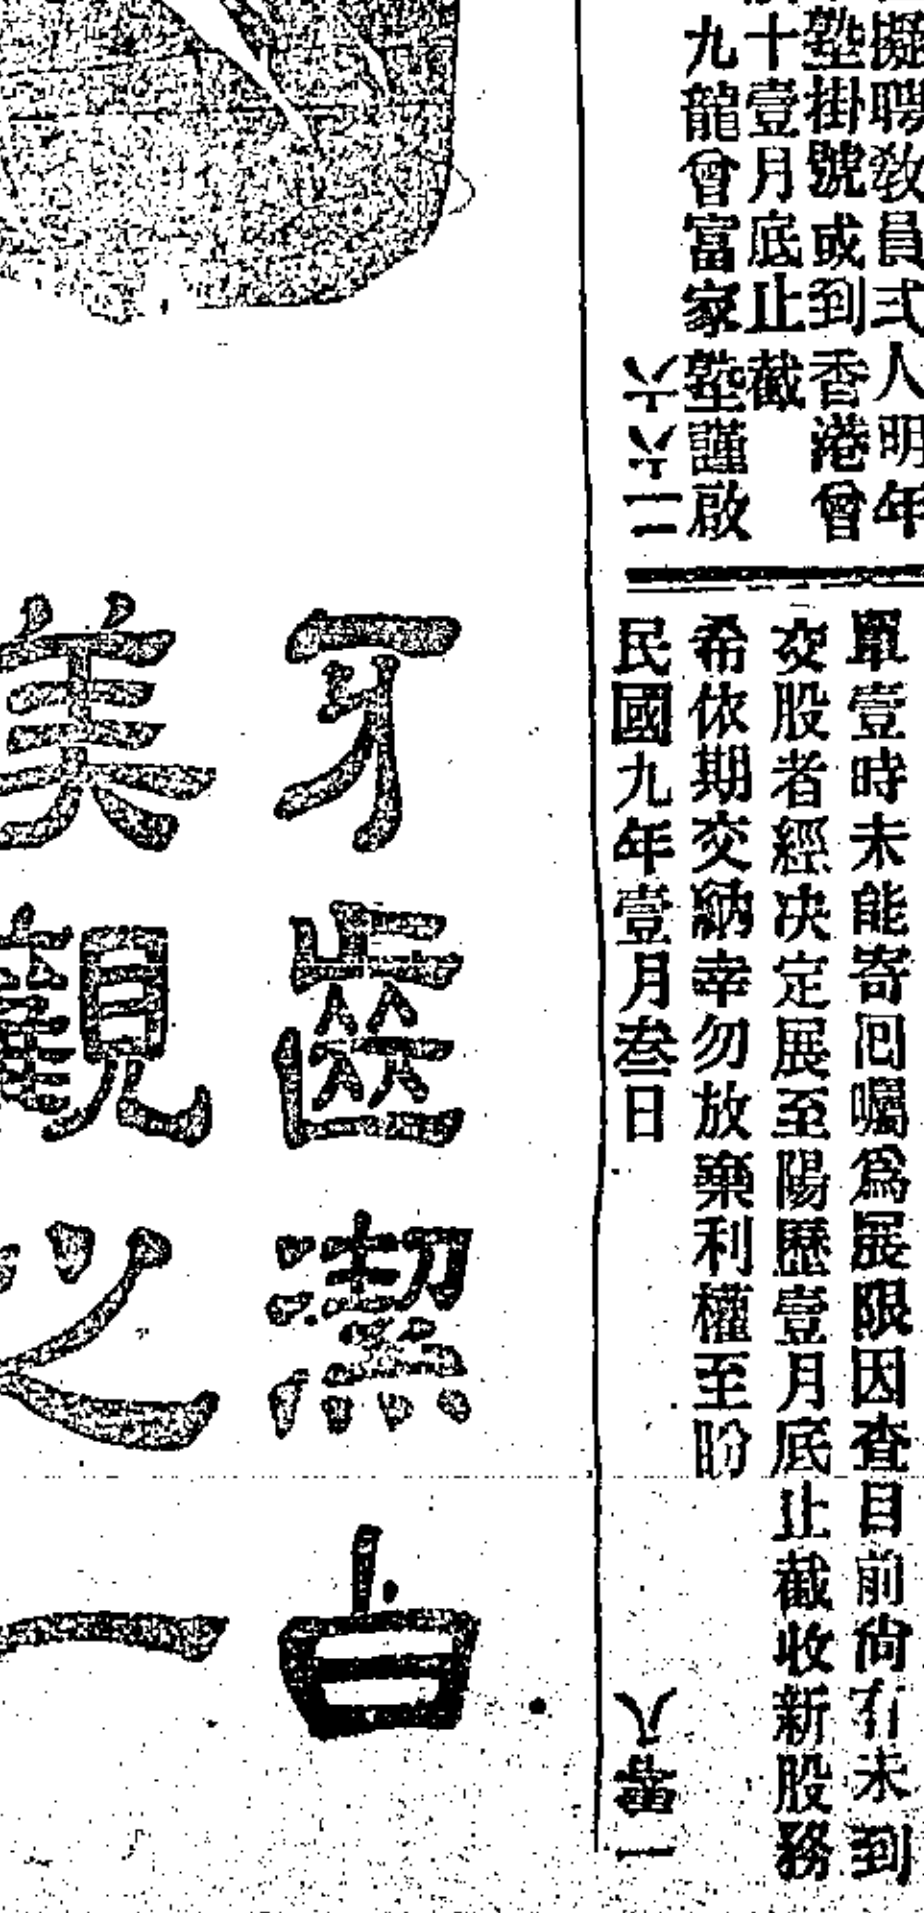 擬聘教員弍人明年
塾掛號或到香港曾
十壹月底止截
九龍曾富家塾謹啟
六六二
單壹時未能寄囘囑爲展限因查目前尙有未到
交股者經决定展至陽歷壹月底止截收新股務
希依期交納幸勿放棄利權至盼
民國九年壹月叁日
牙齒潔白
美觀之一